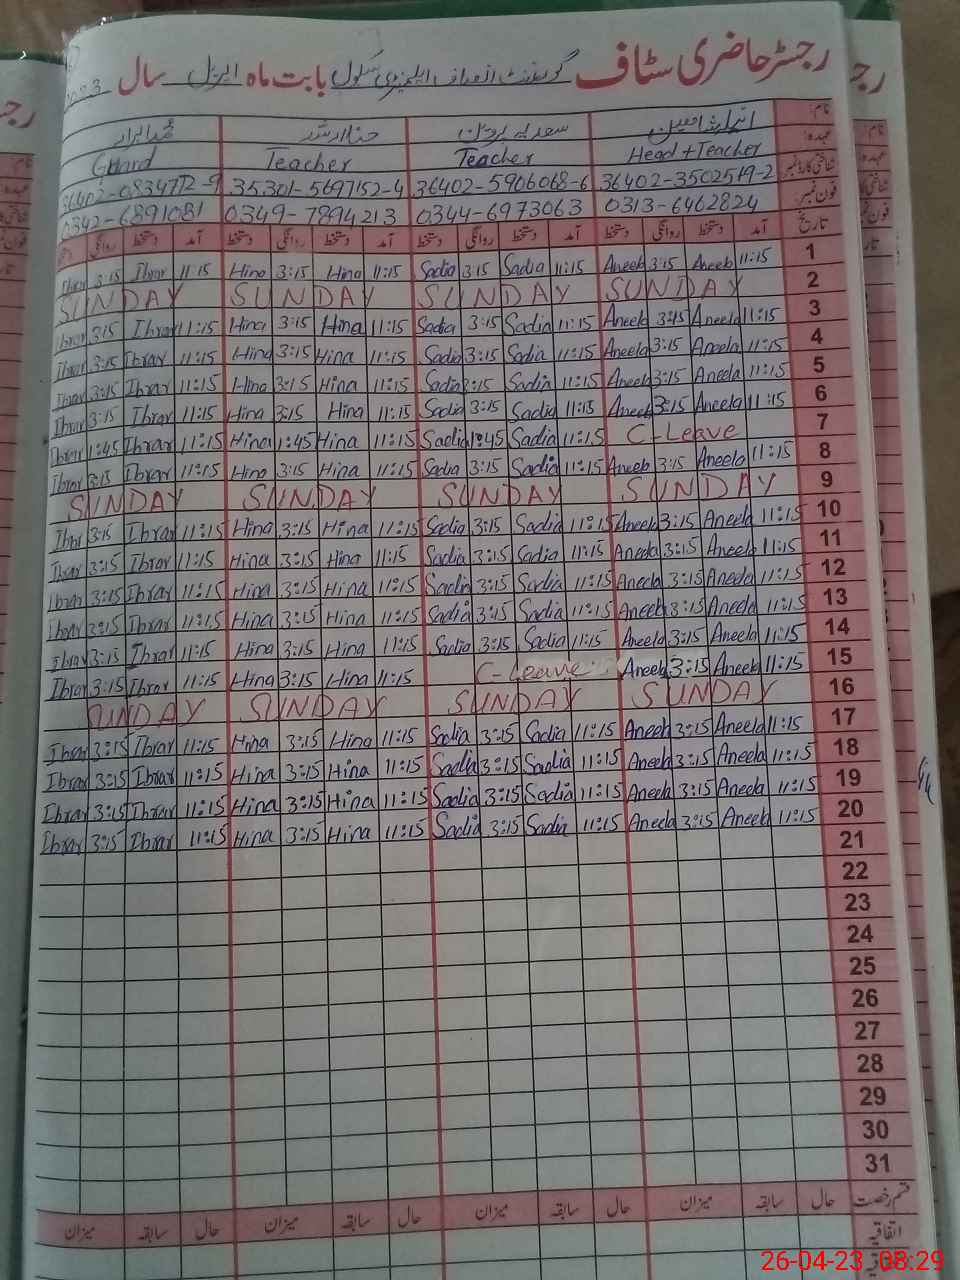 رجسٹر حاضری سٹاف گورنمنٹ انصاف ایلیمنٹری سکول بابت ماہ اپریل سال
نام: سعدیہ پروین حنا ارشد محمد ابرار
عہدہ: Head + Teacher Teacher Teacher Guard
شناختی کارڈ نمبر 36402-3502519-2 36402-5906068-6 35301-5697152-4 36402-0834772-9
فون نمبر 0313-6462824 0344-6973063 0349-7894213 0342-6891081
تاریخ آمد دستخط روانگی دستخط آمد دستخط روانگی دستخط آمد دستخط روانگی دستخط آمد دستخط روانگی دستخط
1 11:15 Aneela 3:15 Aneela 11:15 Sadia 3:15 Sadia 11:15 Hina 3:15 Hina 11:15 Ibrar 3:15 Ibrar
2 SUNDAY SUNDAY SUNDAY SUNDAY
3 11:15 Aneela 3:15 Aneela 11:15 Sadia 3:15 Sadia 11:15 Hina 3:15 Hina 11:15 Ibrar 3:15 Ibrar
4 11:15 Aneela 3:15 Aneela 11:15 Sadia 3:15 Sadia 11:15 Hina 3:15 Hina 11:15 Ibrar 3:15 Ibrar
5 11:15 Aneela 3:15 Aneela 11:15 Sadia 3:15 Sadia 11:15 Hina 3:15 Hina 11:15 Ibrar 3:15 Ibrar
6 11:15 Aneela 3:15 Aneela 11:15 Sadia 3:15 Sadia 11:15 Hina 3:15 Hina 11:15 Ibrar 3:15 Ibrar
7 C-Leave 11:15 Sadia 1:45 Sadia 11:15 Hina 1:45 Hina 11:15 Ibrar 1:45 Ibrar
8 11:15 Aneela 3:15 Aneela 11:15 Sadia 3:15 Sadia 11:15 Hina 3:15 Hina 11:15 Ibrar 3:15 Ibrar
9 SUNDAY SUNDAY SUNDAY SUNDAY
10 11:15 Aneela 3:15 Aneela 11:15 Sadia 3:15 Sadia 11:15 Hina 3:15 Hina 11:15 Ibrar 3:15 Ibrar
11 11:15 Aneela 3:15 Aneela 11:15 Sadia 3:15 Sadia 11:15 Hina 3:15 Hina 11:15 Ibrar 3:15 Ibrar
12 11:15 Aneela 3:15 Aneela 11:15 Sadia 3:15 Sadia 11:15 Hina 3:15 Hina 11:15 Ibrar 3:15 Ibrar
13 11:15 Aneela 3:15 Aneela 11:15 Sadia 3:15 Sadia 11:15 Hina 3:15 Hina 11:15 Ibrar 3:15 Ibrar
14 11:15 Aneela 3:15 Aneela 11:15 Sadia 3:15 Sadia 11:15 Hina 3:15 Hina 11:15 Ibrar 3:15 Ibrar
15 11:15 Aneela 3:15 Aneela C-Leave 11:15 Hina 3:15 Hina 11:15 Ibrar 3:15 Ibrar
16 SUNDAY SUNDAY SUNDAY SUNDAY
17 11:15 Aneela 3:15 Aneela 11:15 Sadia 3:15 Sadia 11:15 Hina 3:15 Hina 11:15 Ibrar 3:15 Ibrar
18 11:15 Aneela 3:15 Aneela 11:15 Sadia 3:15 Sadia 11:15 Hina 3:15 Hina 11:15 Ibrar 3:15 Ibrar
19 11:15 Aneela 3:15 Aneela 11:15 Sadia 3:15 Sadia 11:15 Hina 3:15 Hina 11:15 Ibrar 3:15 Ibrar
20 11:15 Aneela 3:15 Aneela 11:15 Sadia 3:15 Sadia 11:15 Hina 3:15 Hina 11:15 Ibrar 3:15 Ibrar
21
22
23
24
25
26
27
28
29
30
31
قسم رخصت حال سابقہ میزان حال سابقہ میزان حال سابقہ میزان حال سابقہ میزان
اتفاقیہ
26-04-23 08:29